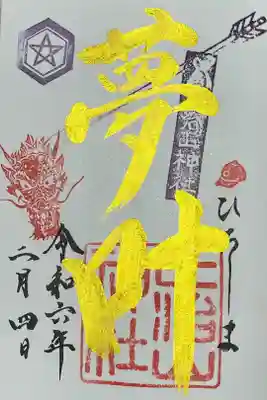 ひろしま
山神社
夢叶
令和六年
二月四日